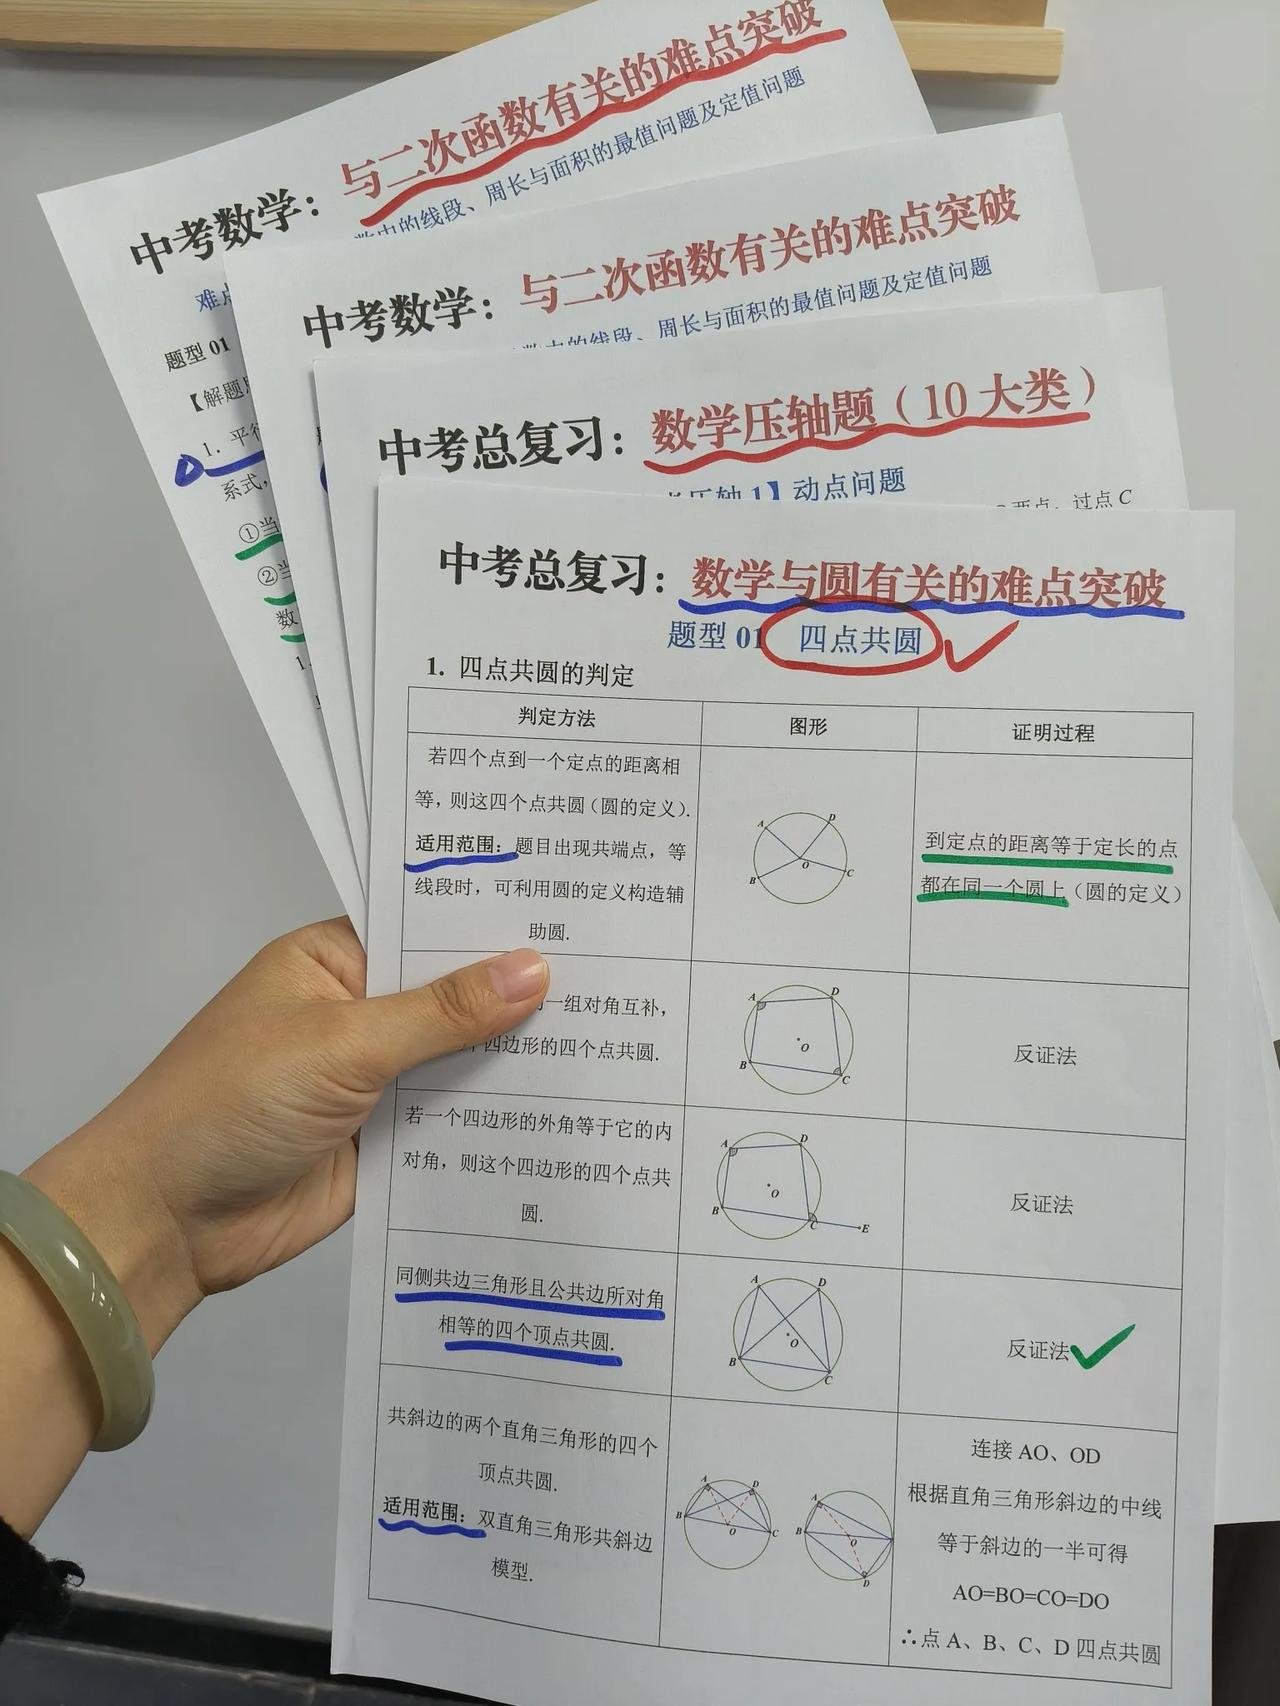 中考数学：与二次函数有关的难点突破
数中的线段、周长与面积的最值问题及定值问题
难点
题型 01
【解题
1. 平行
系式，
①当
②当
数
1.
中考数学：与二次函数有关的难点突破
数中的线段、周长与面积的最值问题及定值问题
中考总复习：数学压轴题（10大类）
压轴1】动点问题
两点，过点 C
中考总复习：数学与圆有关的难点突破
题型 01 四点共圆
1. 四点共圆的判定
判定方法
图形
证明过程
若四个点到一个定点的距离相
等，则这四个点共圆（圆的定义）.
适用范围：题目出现共端点，等
线段时，可利用圆的定义构造辅
助圆.
A
D
O
B
C
到定点的距离等于定长的点
都在同一个圆上（圆的定义）
一组对角互补，
四边形的四个点共圆.
A
D
O
B
C
反证法
若一个四边形的外角等于它的内
对角，则这个四边形的四个点共
圆.
A
D
O
B
C
E
反证法
同侧共边三角形且公共边所对角
相等的四个顶点共圆.
A
D
O
B
C
反证法
共斜边的两个直角三角形的四个
顶点共圆.
适用范围：双直角三角形共斜边
模型.
A
D
B
O
C
A
B
O
D
连接 AO、OD
根据直角三角形斜边的中线
等于斜边的一半可得
AO=BO=CO=DO
∴点 A、B、C、D 四点共圆